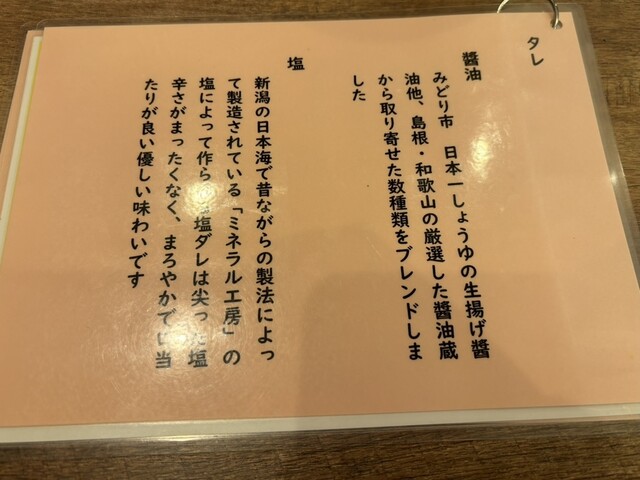 タレ
醬油
みどり市　日本一しょうゆの生揚げ醬
油他、島根・和歌山の厳選した醬油蔵
から取り寄せた数種類をブレンドしま
した
塩
新潟の日本海で昔ながらの製法によっ
て製造されている「ミネラル工房」の
塩によって作ら塩ダレは尖った塩
辛さがまったくなく、まろやかで当
たりが良い優しい味わいです